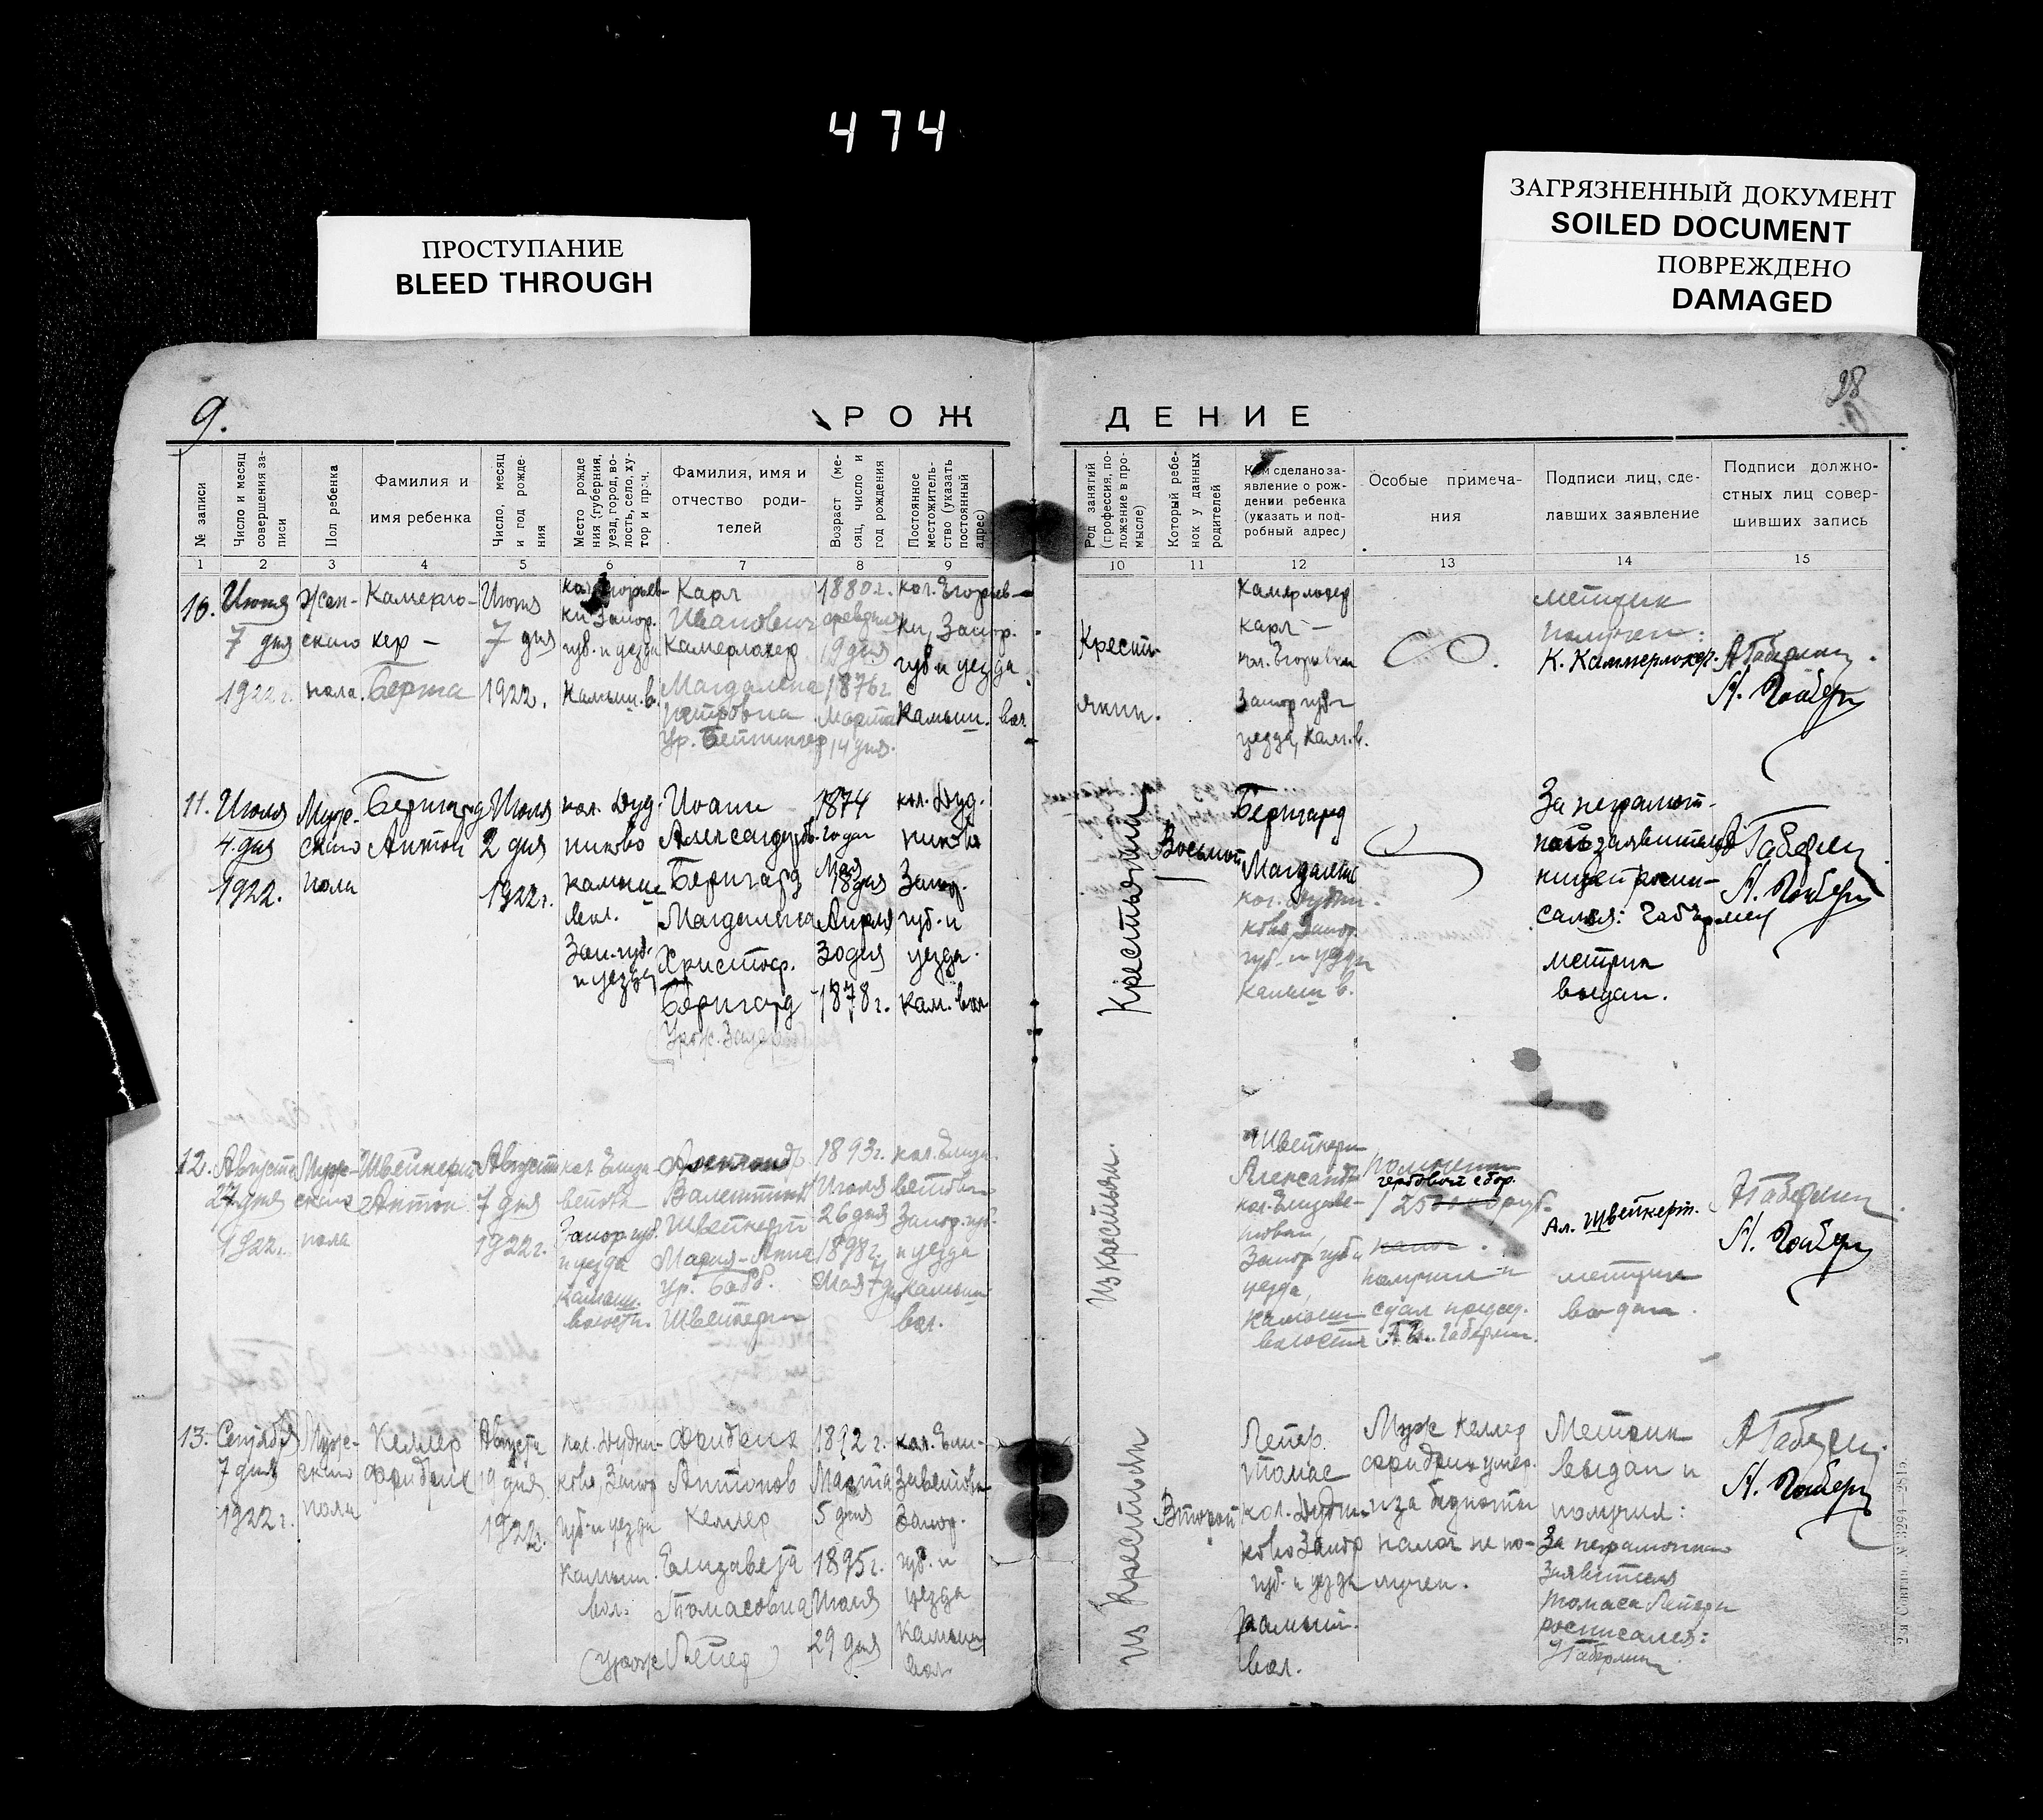 474
ПРОСТУПАНИЕ
BLEED THROUGH
ЗАГРЯЗНЕННЫЙ ДОКУМЕНТ
SOILED DOCUMENT
ПОВРЕЖДЕНО
DAMAGED
9.
28
РОЖДЕНИЕ
№ записи
Число и месяц
совершения за-
писи
Пол ребенка
Фамилия и
имя ребенка
Число, месяц
и год рожде-
ния
Место рожде
ния (губерния,
уезд, город, во-
лость, село, ху-
тор и пр.ч.
Фамилия, имя и
отчество роди-
телей
Возраст (ме-
сяц, число и
год рождения
Постоянное
местожитель-
ство (указать
постоянный
адрес)
Род занятий
(профессия, по-
ложение в про-
мысле)
Который ребе-
нок у данных
родителей
Кем сделано за-
явление о рож-
дении ребенка
(указать и под-
робный адрес)
Особые примеча-
ния
Подписи лиц, сде-
лавших заявление
Подписи должно-
стных лиц совер-
шивших запись
1 2 3 4 5 6 7 8 9 10 11 12 13 14 15
10.
7 дня
1922 г.
Жен-
ского
пола
Камерло-
кер —
Берта
7 дня
1922.
ки Запор.
губ. и уезда
Камыш. в.
Карл
Иванович
Камерлокер
Магдалена
Петровна
1880 г.
19 дня
1876 г.
Марта
14 дня.
кол. Егорьев-
ки, Запор.
губ и уезда
Камыш. вол.
Крестъ-
янин.
Камерлокер
Карл —
кол. Егорьевки
Запор губ и
уезда, Кам. в.
метрик
получен:
К. Каммерлокер.
11.
Июля
4 дня
1922.
Муж-
ского
пола
Бернгард
Антон
Июля
2 дня
1922 г.
кол. Дуд-
никово
камыш.
вол.
Зап. губ.
и уезда
Иоанн
Александров.
Бернгард
Магдалина
Христоф.
Бернгард
1874
года
Мая
18 дня
Апреля
30 дня
1878 г.
кол. Дуд-
никово
Запор.
губ. и
уезда.
кам. вол
Крестьянина
Восьмой
Бернгард
Магдалина
кол. Дудни-
ково, Запор.
губ. и уезда
камыш в.
За неграмот-
салея:
метрик
выдан.
12.
Августа
27 дня
1922.
Муж-
ского
пола
Швейкерт
Антон
Августа
7 дня
1922 г.
кол. Елиза-
ветовки
Запор. губ.
и уезда
камыш.
волости.
Александр
Валентинов
Швейкерт
Мария-Анна
ур. Бобб.
Швейкерт
1893 г.
Июля
26 дня
1898 г.
Мая 7 дня
кол. Елиза-
ветовки
Запор. губ.
и уезда
камыш
вол.
Из крестьян.
Швейкерт
Александр
кол. Елизаве-
товки
Запор. губ и
уезда,
Камыш
волости
гербовой сбор.
получил и
Ал. Швейкерт.
метрик
выдан.
13.
Сентября
7 дня
1922 г.
Муж-
ского
пола
Келлер
Фридрих
Августа
19 дня
1922
кол. Дудни-
ково, Запор
губ. и уезда
Камыш.
вол.
Фридрих
Антонов
Келлер
Елизавета
Томасовна
(урож. Лепер)
1892 г.
Марта
5 дня
1895 г.
Июля
29 дня
кол. Ели-
заветовки
Запор.
губ. и
уезда
Камыш
вол.
Из Крестьян
Второй
Лепер
Томас
кол. Дудни-
ково Запор
губ. и уезда
камыш.
вол.
Муж Келлер
Фридрих умер.
и за бедности
налог не по-
лучен.
Метрик
выдан и
получил:
За неграмотного
заявителя
Томаса Лепера
росписался: